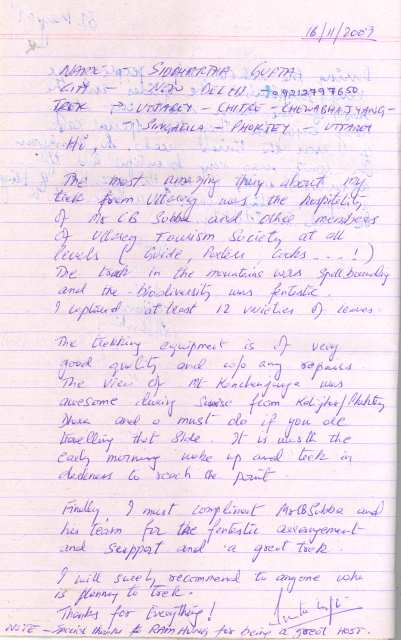 16/11/2009
NAME - SIDDHARTHA GUPTA
CITY - NEW DELHI - 09212797650
TREK -> UTTAREY - CHITRE - CHEWABHAJYANG -
SINGHELA - PHOKTEY - UTTAREY
Hi,
The most amazing thing about my
trek from Uttarey was the hospitality
of Mr CB Subba and other members
of Uttarey Tourism Society at all
levels ( Guide, Porters, Cooks ....! )
The trek in the mountains was spellbounding
and the biodiversity was fentastic.
I captured at least 12 varieties of leaves.
The trekking equipment is of very
good quality and w/o any repairs
The view of Mt Kanchenjunga was
awesome during Sunrise from /Phoktey
Dhara and a must do if you are
travelling that side. It is worth the
early morning wake up and trek in
darkness to reach the point.
Finally I must compliment Mr CB Subba and
his team for the fentastic arrangement
and support and a great trek.
I will surely recommend to anyone who
is planning to trek.
Thanks for Everything!
NOTE - Special thanks to for being a great HOST.